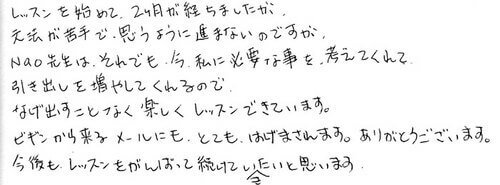 レッスンを始めて、2ヶ月が経ちましたが、
文法が苦手で、思うように進まないのですが、
Nao先生は、それでも、今、私に必要な事を、考えてくれて、
引き出しを増やしてくれるので、
なげ出すことなく楽しくレッスンできています。
ビギンから来るメールにも、とても、はげまされます。ありがとうございます。
今後も、レッスンをがんばって続けていきたいと思います。